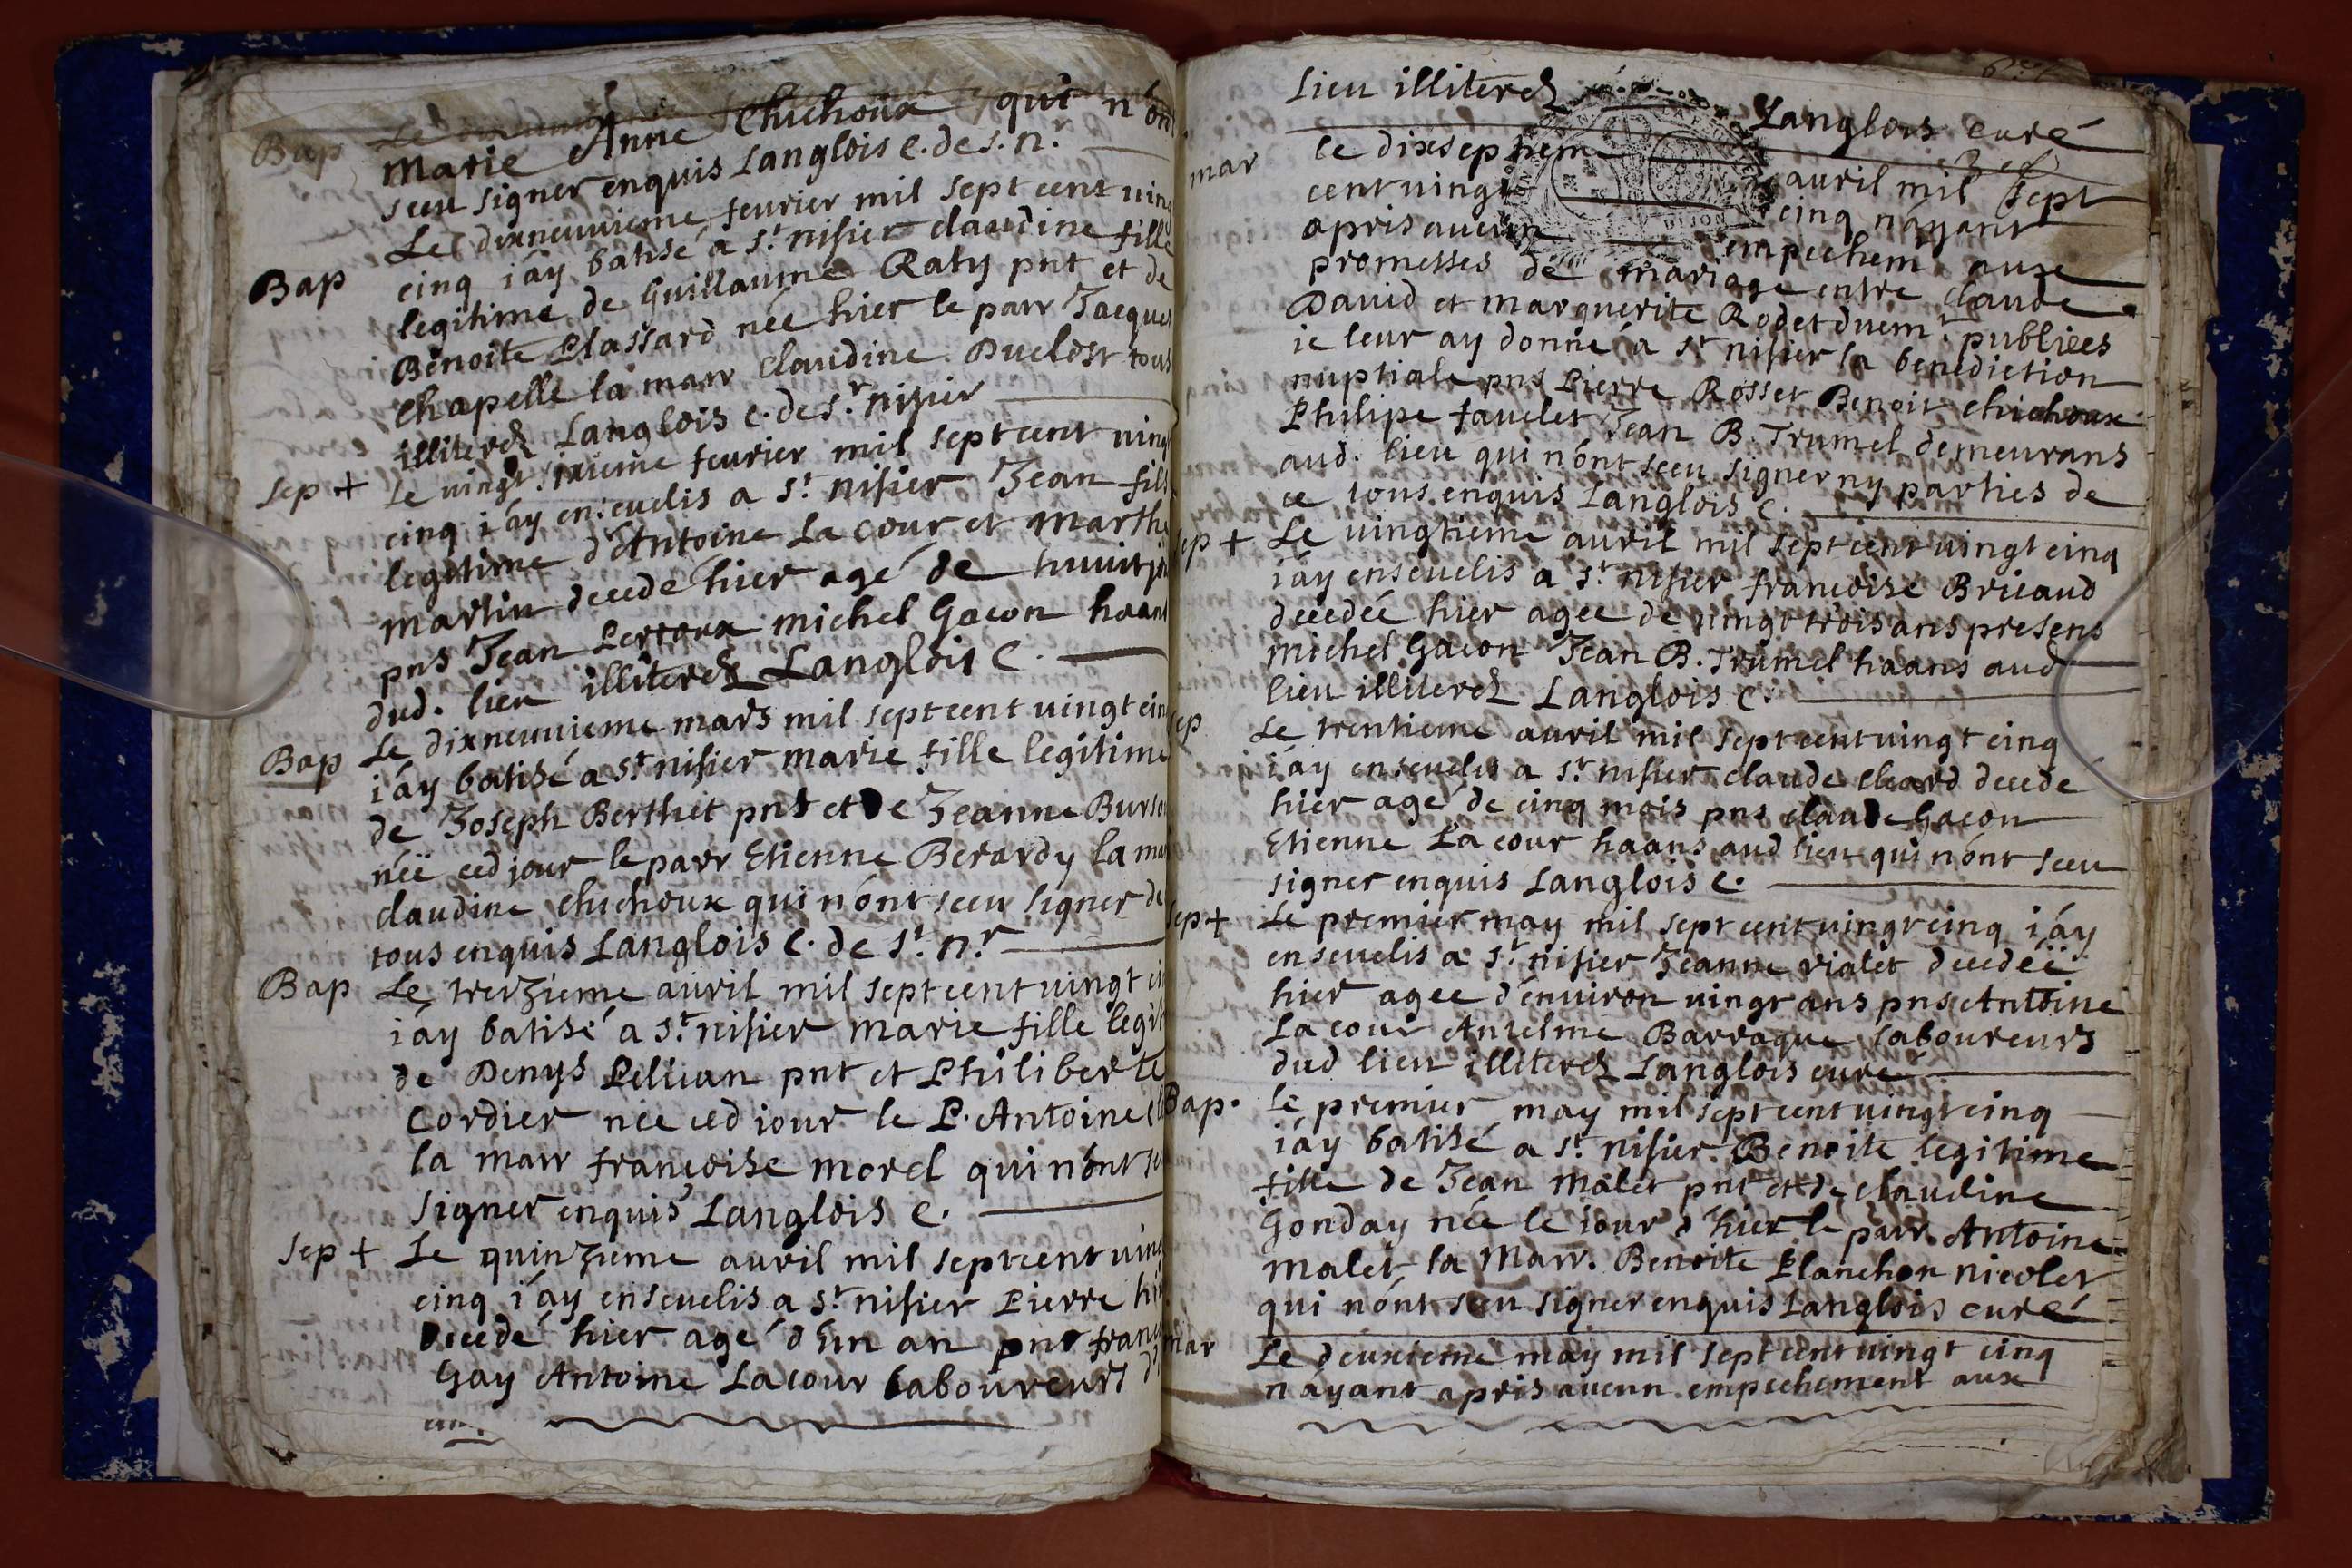 Bap Le
Marie Anne Chichoux qui n'ont
sceu signer enquis Langlois C. de s. n.r
Bap Le dixneuvieme feurier mil sept cent ving
cinq i'ay batisé a st. nisier claudine fille
legitime de Guillaume Raty pnt et de
Benoite Plassard née hier le parr Jacques
Chapelle la marr Claudine Duclost tous
illiterez Langlois C. de s.r nizier
sep + Le vingt feurier mil sept cent ving
cinq i'ay enseuelis a st. nisier Jean fils
legitime d'Antoine La cour et Marthe
Martin decede hier agé de huuit
pns Jean Michel Gacon haans
dud. lieu illiterez Langlois C.
Bap Le dixneuuieme mars mil sept cent uingt cin
i'ay batisé a st nisier marie fille legitime
de Joseph Berthet pnt et de Jeanne
néë ced jour le parr Etienne Berardy la mar
claudine Chichoux qui n'ont sceu signer de
tous enquis Langlois C. de st. n.r
Bap Le trezieme auril mil sept cent uingt ci
i'ay batisé a st nisier marie fille legit
de Denys Peliuan pnt et Philiberte
Cordier née ced iour le P. Antoine
la marr francoise morel qui n'ont sc
signer enquis Langlois C.
Sep + Le quinzieme auril mil sept cent uing
cinq i'ay enseuelis a st nisier Pierre
Decedé hier agé d'un an pns franc
Gay Antoine Lacour Laboureurs

lieu illiterez
Langlois curé
mar Le dixseptieme auril mil sept
cent uingt cinq n'ayant
apris aucun empechem. aux
promesses de mariage entre claude
David et marguerite Rodet duem.t publiees
ie leur ay donné a st nisier la benediction
nuptiale pns Pierre Rosset Benoit Chichoux
Philipe fauelet Jean B. Trumel demeurans
aud. lieu qui n'ont sceu signer ny parties de
ce tous enquis Langlois C.
sep + Le uingtieme auril mil sept cent uingt cinq
i'ay enseuelis a st nisier francoise Bricaud
decedéé hier agee de uingt trois ans presens
michel Gacon Jean B. Trumel haans aud
lieu illiterez Langlois C.
sep Le trentieme auril mil sept cent uingt cinq
i'ay enseuelis a st nisier claude decedé
hier agé de cinq mois pns claude Gacon
Etienne La cour haans aud lieu qui n'ont sceu
signer enquis Langlois C.
sep + Le premier may mil sept cent uingt cinq i'ay
enseuelis a st nisier Jeanne vialet decedéë
hier agee d'enuiron uingt ans pns Antoine
La cour Anselme Barraque laboureurs
dud lieu illiterez Langlois curé
Bap. Le premier may mil sept cent uingt cinq
i'ay batisé a st. nisier Benoite legitime
fille de Jean Malet pnt et de claudine
Gonday née le iour d'hier le parr. Antoine
Malet la Marr. Benoite Planchon nicolet
qui n'ont sceu signer enquis Langlois curé
mar Le deuxieme may mil sept cent uingt cinq
n'ayant apris aucun empechement aux